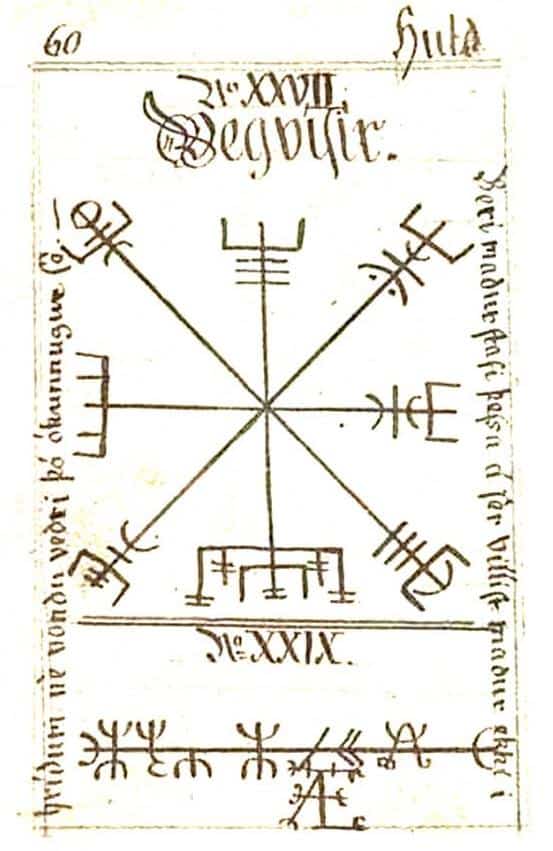 60
Huld
Nº XXVII.
Vegvísir.
Beri maður stafi þessa á sér villist maður ekki í
hríðum né vondu veðri þó ókunnugur sé.
Nº XXIX.